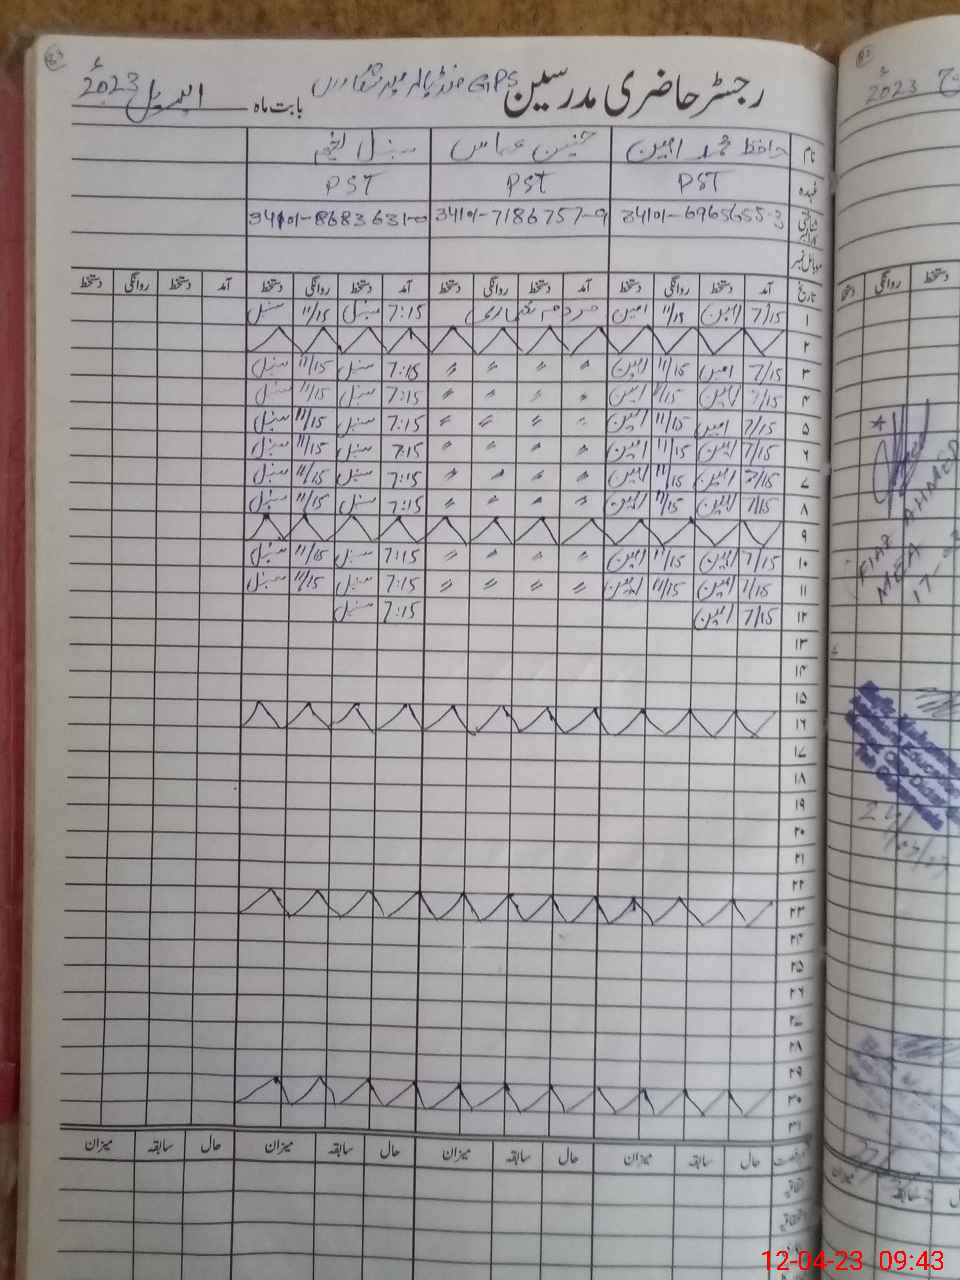 رجسٹر حاضری مدرسین GPS بابت ماہ اپریل 2023ء
نام حافظ محمد امین حنین عباس سنبل
عہدہ PST PST PST
شناختی کارڈ نمبر 34101-6965655-3 34101-7186757-9 34101-8683631-0
موبائل نمبر
تاریخ آمد دستخط روانگی دستخط آمد دستخط روانگی دستخط آمد دستخط روانگی دستخط آمد دستخط روانگی دستخط
۱ 7/15 امین 11/15 امین 7:15 سنبل 11/15 سنبل
۲
۳ 7/15 امین 11/15 امین 〃 〃 〃 〃 7:15 سنبل 11/15 سنبل
۴ 7/15 امین 11/15 امین 〃 〃 〃 〃 7:15 سنبل 11/15 سنبل
۵ 7/15 امین 11/15 امین 〃 〃 〃 〃 7:15 سنبل 11/15 سنبل
۶ 7/15 امین 11/15 امین 〃 〃 〃 〃 7:15 سنبل 11/15 سنبل
۷ 7/15 امین 11/15 امین 〃 〃 〃 〃 7:15 سنبل 11/15 سنبل
۸ 7/15 امین 11/15 امین 〃 〃 〃 〃 7:15 سنبل 11/15 سنبل
۹
۱۰ 7/15 امین 11/15 امین 〃 〃 〃 〃 7:15 سنبل 11/15 سنبل
۱۱ 7/15 امین 11/15 امین 〃 〃 〃 〃 7:15 سنبل 11/15 سنبل
۱۲ 7/15 امین 7:15 سنبل
۱۳
۱۴
۱۵
۱۶
۱۷
۱۸
۱۹
۲۰
۲۱
۲۲
۲۳
۲۴
۲۵
۲۶
۲۷
۲۸
۲۹
۳۰
۳۱
حال سابقہ میزان حال سابقہ میزان حال سابقہ میزان حال سابقہ میزان
2023ء
دستخط روانگی
AHMED
MEA
12-04-23 09:43